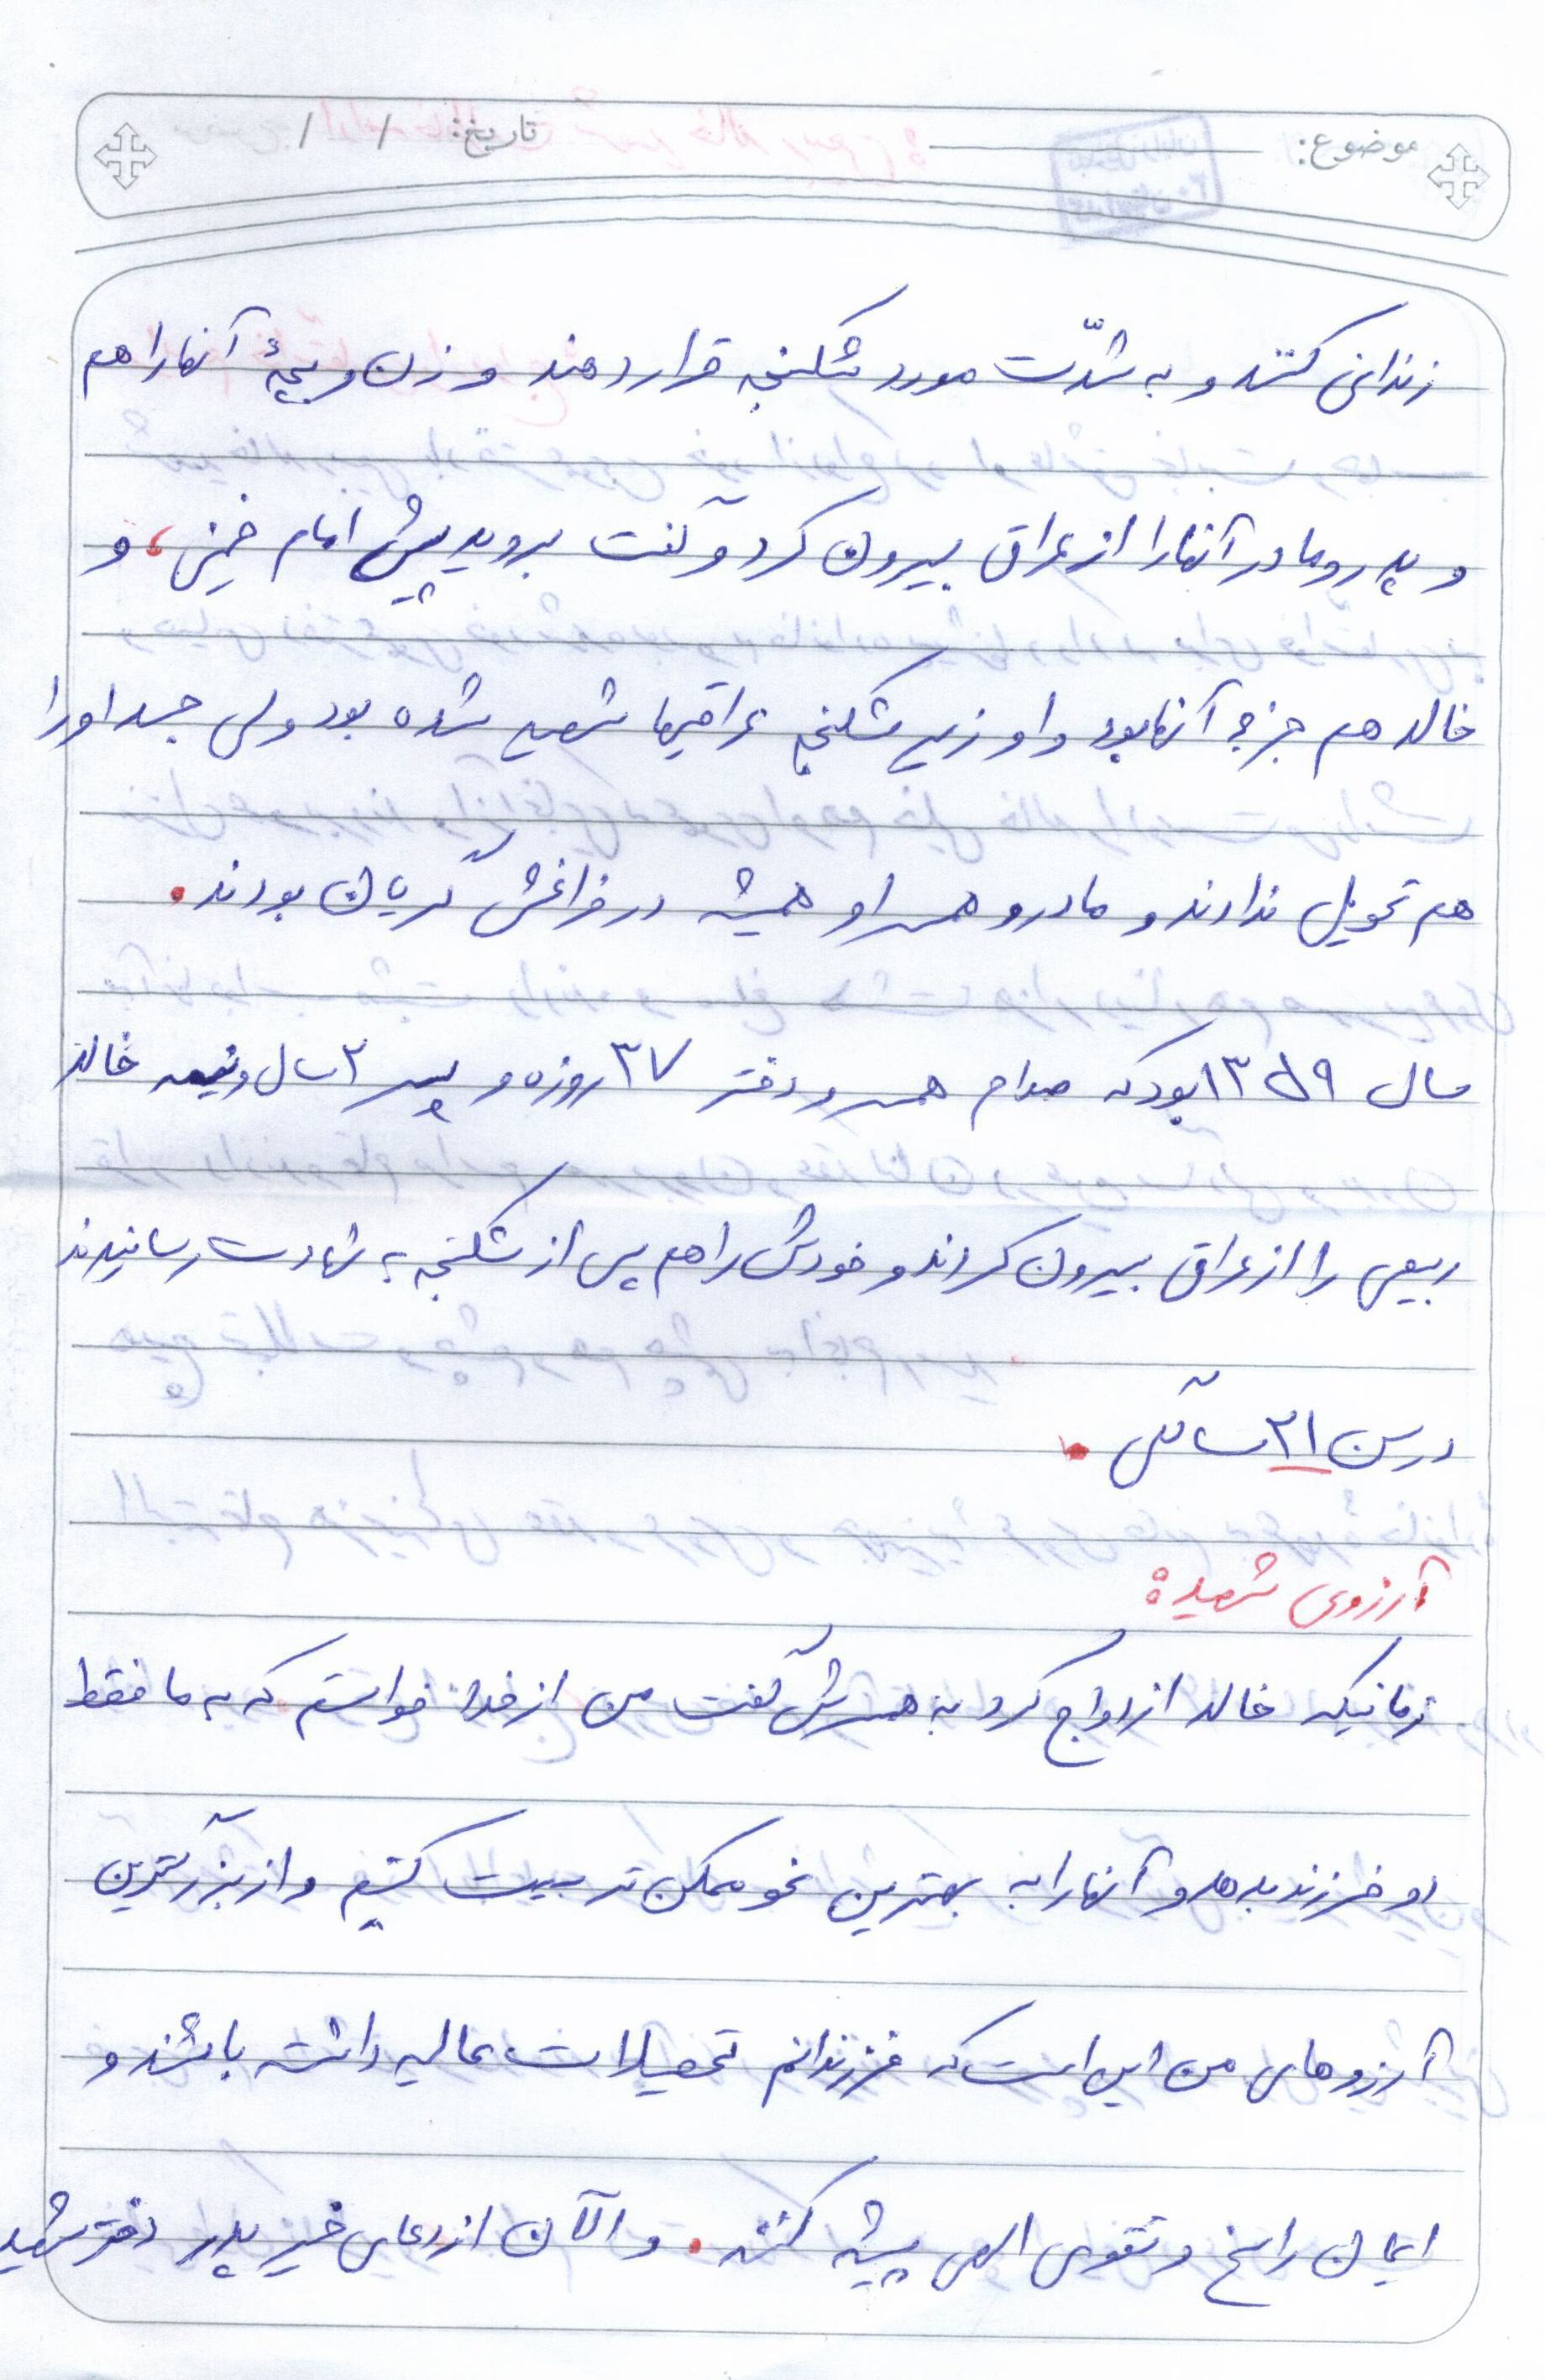 موضوع: تاریخ: / /
زندانی کنند و به شدّت مورد شکنجه قرار دهند و زن و بچهٔ آنها را هم
و پدر و مادر آنها را از عراق بیرون کرد و گفت بروید پیش امام خمینی، و
خالد هم جزء آنها بود و او زیر شکنجه عراقیها شهید شده بود ولی جسد او را
هم تحویل ندادند و مادر و همسر او همیشه در فراغش گریان بودند.
سال ۱۳۵۹ بود که صدام همسر و دختر ۳۷ روزه و پسر ۲ سال و نیمه خالد
ربیعی را از عراق بیرون کردند و خودش را هم پس از شکنجه به شهادت رسانیدند
در سن ۳۱ سالگی.
آرزوی شهید:
زمانیکه خالد ازدواج کرد به همسرش گفت من از خدا خواستم که به ما فقط
دو فرزند بدهد و آنها را به بهترین نحو ممکن تربیت کنیم و از بزرگترین
آرزوهای من این است که فرزندانم تحصیلات عالیه داشته باشند و
ایمان راسخ و تقوی الهی پیشه کنند. و الآن از دعای خیر پدر دختر شهید